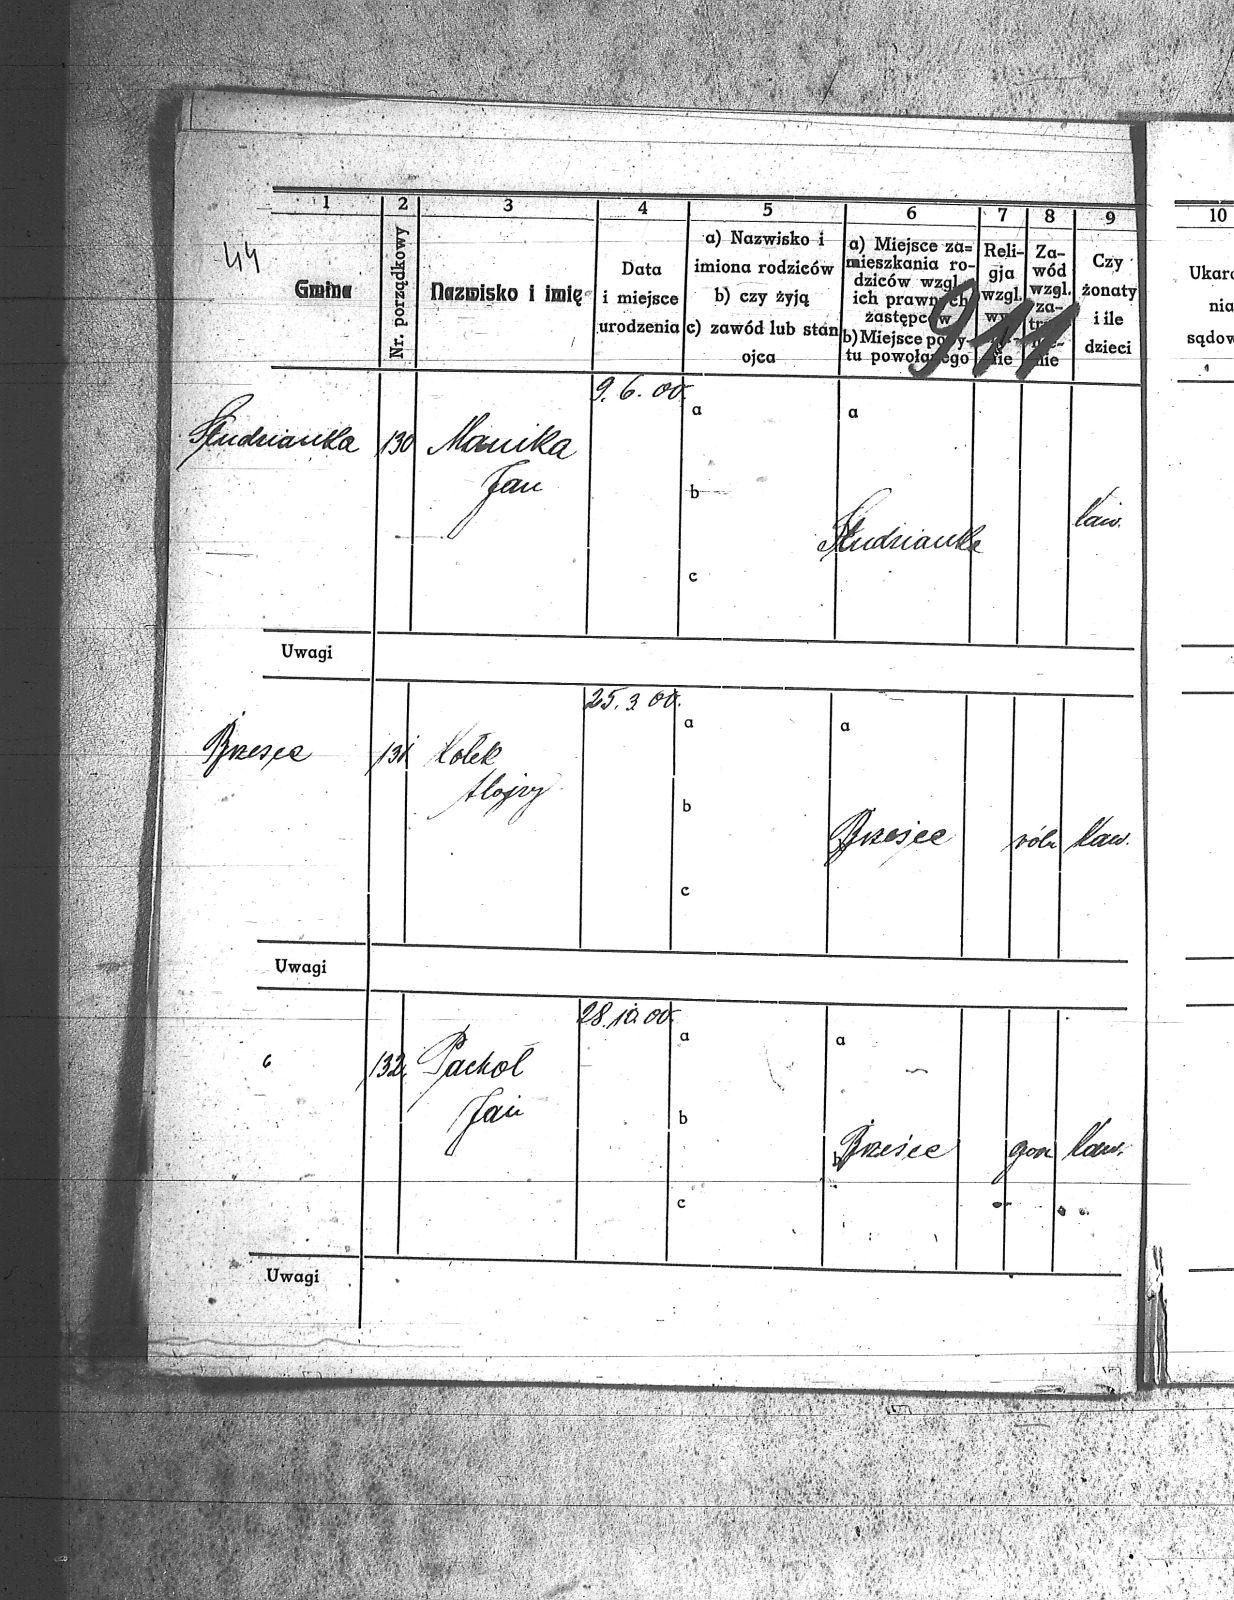 44
1 2 3 4 5 6 7 8 9 10
Gmina
Nr. porządkowy
Nazwisko i imię
Data
i miejsce
urodzenia
a) Nazwisko i
imiona rodziców
b) czy żyją
c) zawód lub stan
ojca
a) Miejsce za=
mieszkania ro-
dziców wzgl.
ich prawnych
zastępców
b) Miejsce poby-
tu powołanego
Reli-
gja
wzgl.
Za-
wód
wzgl.
za-
Czy
żonaty
i ile
dzieci
911
Studzianka 130 Manika
Jan
9.6.00.
a
b
c
a
Studzianka
kaw.
Uwagi
Brzeźce 131 Kołek
Alojzy
25.3.00.
a
b
c
a
Brzeźce
róln
kaw.
Uwagi
132. Pachoł
Jan
28.10.00.
a
b
c
a
b
Brzeźce
kaw.
Uwagi